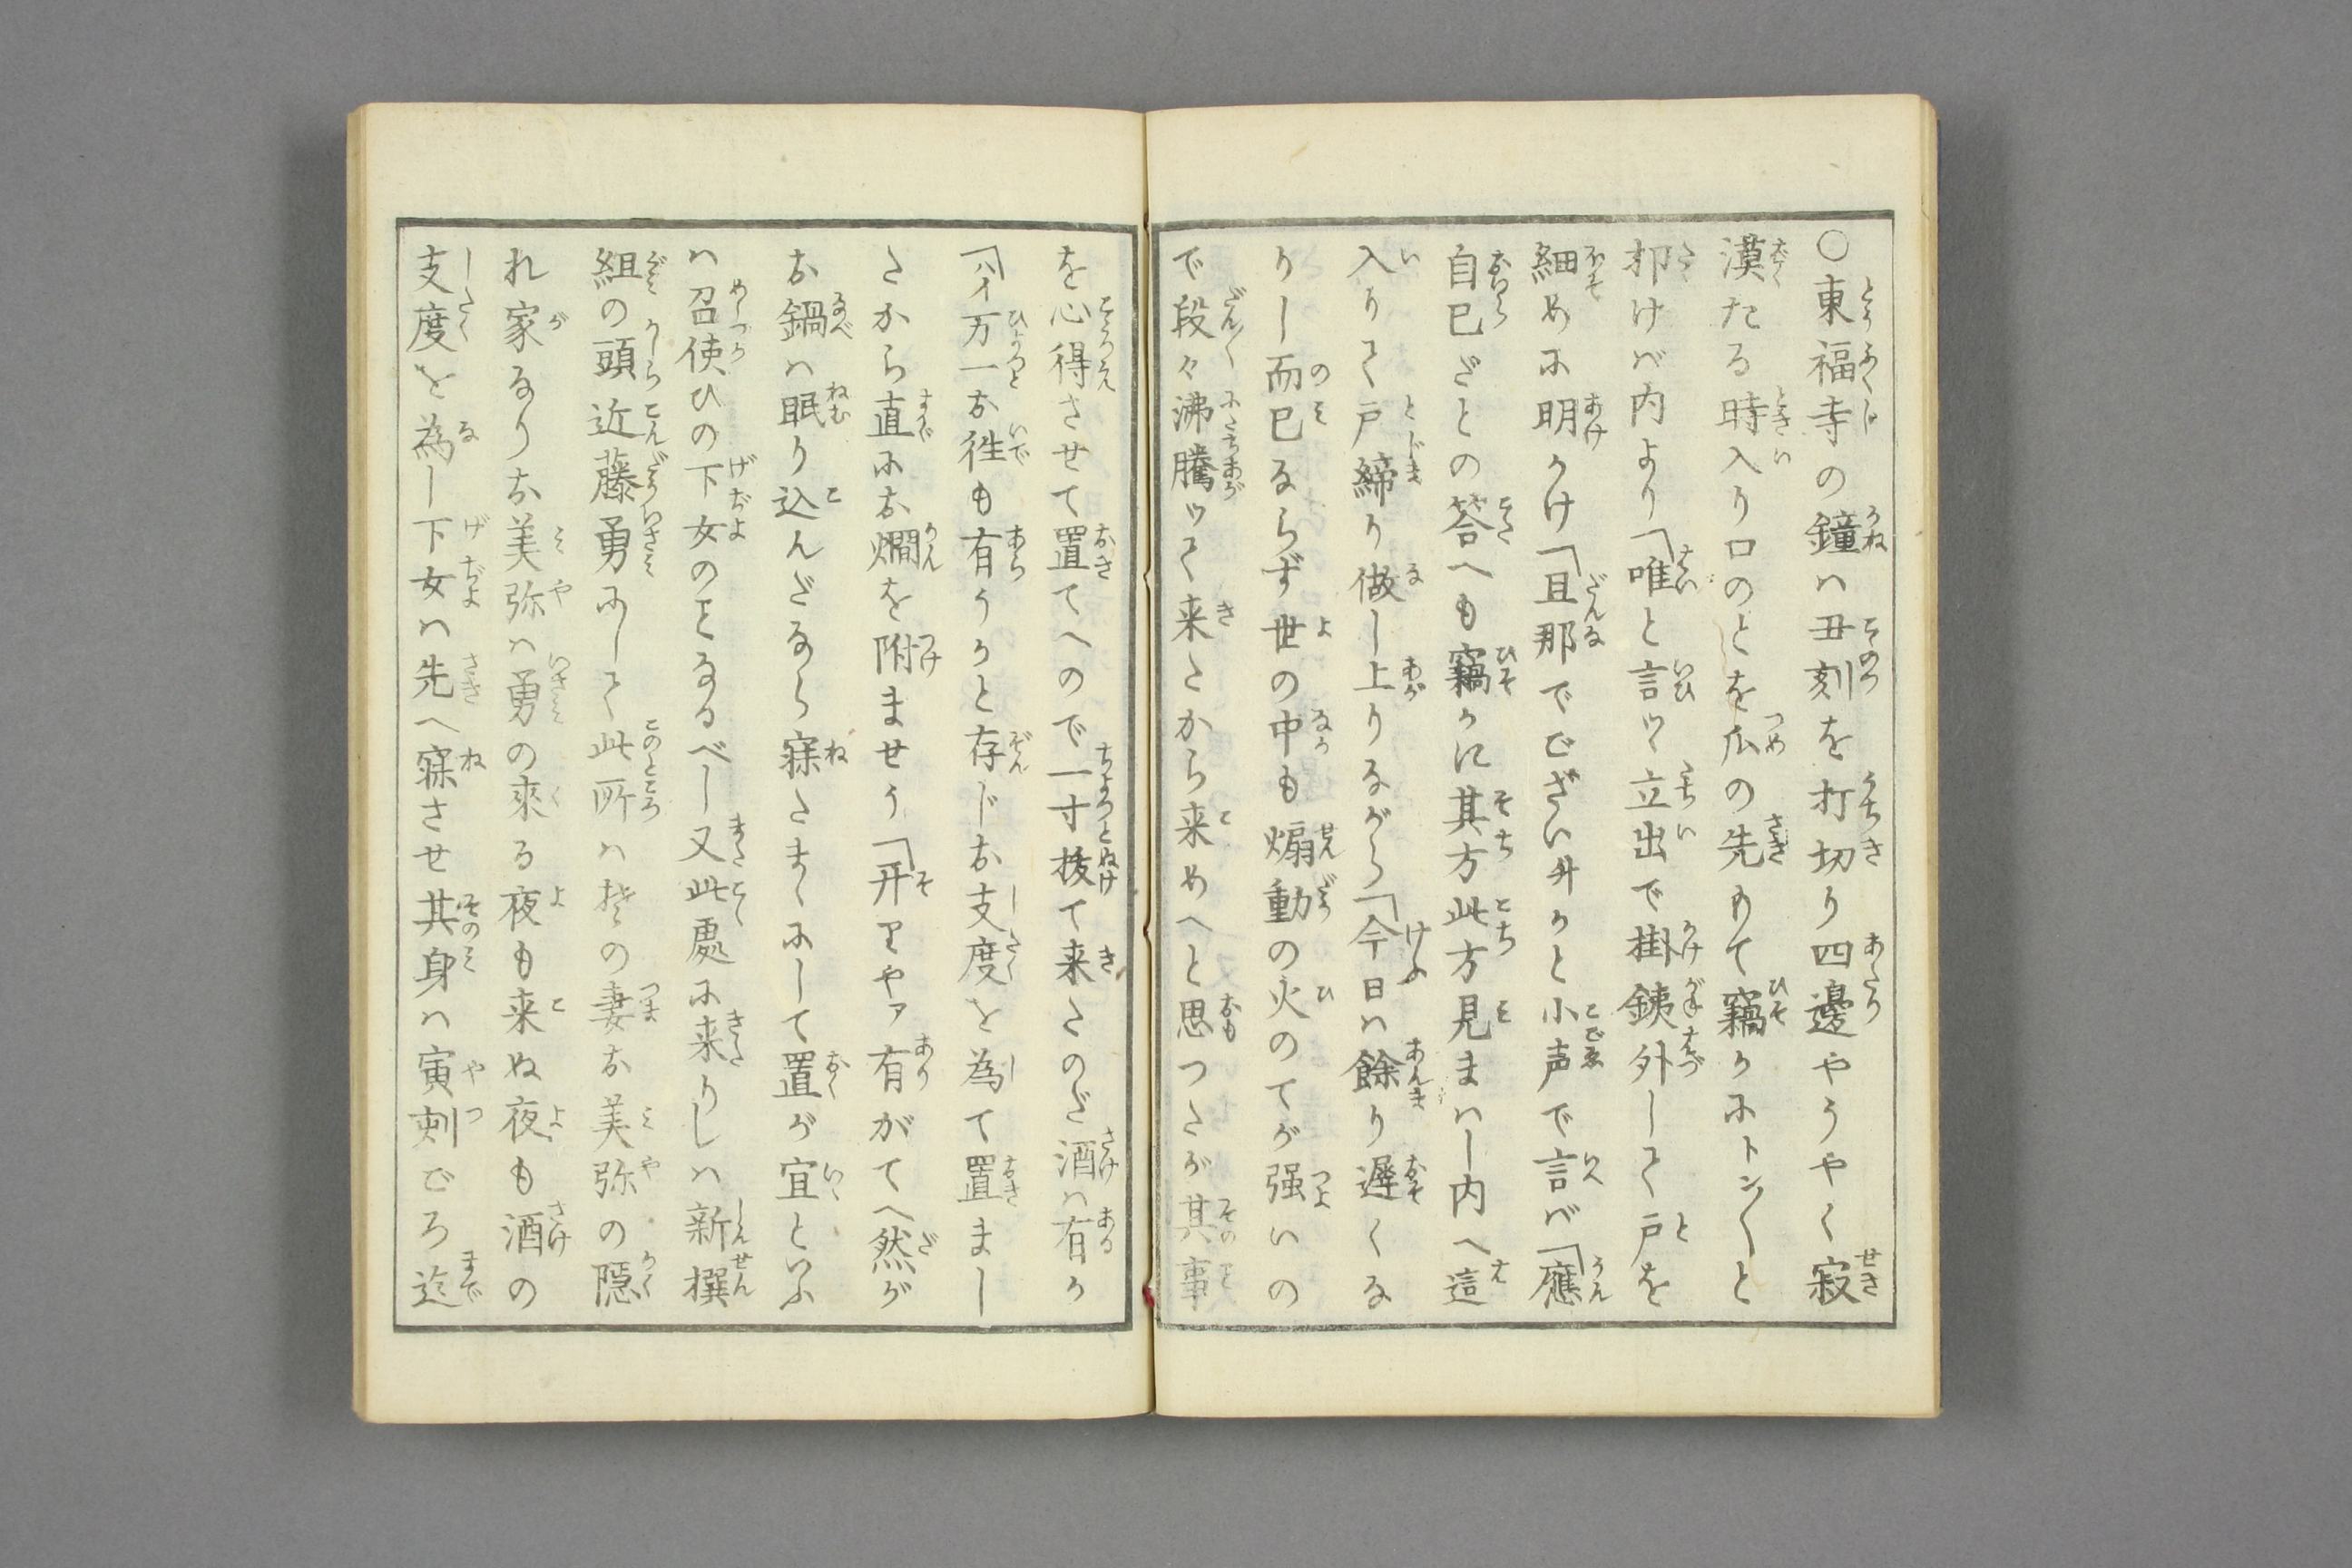 ○東福寺の鐘ハ丑刻を打切り四邊やうやく寂
漠たる時入り口のとを爪の先もて竊かにトン〳〵と
扣けバ内より「唯と言ツヽ立出で掛銕外して戸を
細めに明かけ「且那でござい升かと小声で言バ「應
自己だとの答へも竊かに其方此方見まハし内へ這
入りて戸締り做し上りながら「今日ハ餘り遅くな
りし而已ならず世の中も煽動の火のてが强いの
で段々沸騰ツて来たから来めへと思つたが其事
を心得させて置てへので一寸抜て来たのだ酒ハ有か
「ハイ万一お徃も有うかと存じお支度を為て置まし
たから直にお燗を附ませう「开りやア有がてへ然が
お鍋ハ眠り込んだなら寐たまゝにして置が宜といふ
ハ召使ひの下女のことなるべし又此處に来りしハ新撰
組の頭近藤勇にして此所ハ其の妻お美弥の隠
れ家なりお美弥ハ勇の來る夜も来ぬ夜も酒の
支度を為し下女ハ先へ寐させ其身ハ寅刻ごろ迄